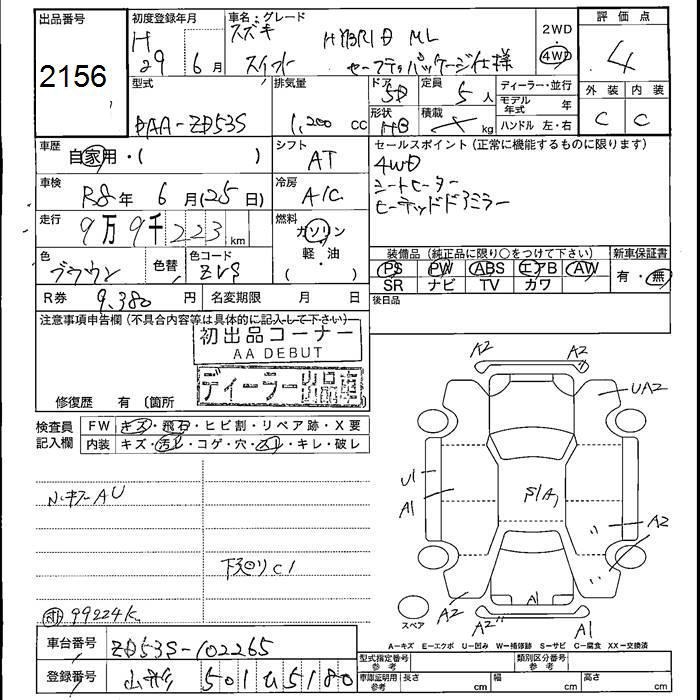 出品番号
2156
初度登録年月
H 29年 6月
車名・グレード
スズキ HYBRID ML
スイフト セーフティパッケージ仕様
2WD
4WD
評価点
4
外装 内装
C C
型式
DAA-ZD53S
排気量
1,200 cc
ドア 5D
形状 HB
定員 5人
積載 kg
ディーラー・並行
モデル年式 年
ハンドル 左・右
車歴
自家用・( )
シフト
AT
セールスポイント(正常に機能するものに限ります)
4WD
シートヒーター
ヒーテッドドアミラー
車検
R8年 6月(25日)
冷房
A/C
走行
9万9千223km
燃料
ガソリン
軽・油
( )
色
ブラウン
色替
色コード
ZVS
装備品 (純正品に限り○をつけて下さい)
PS PW ABS エアB AW
SR ナビ TV カワ
新車保証書
有・無
R券 9,380円
名変期限 月 日
後日品
注意事項申告欄(不具合内容等は具体的に記入して下さい)
初出品コーナー
AA DEBUT
ディーラー出品車
修復歴 有 〔箇所
検査員記入欄
FW キズ・飛石・ヒビ割・リペア跡・X要
内装 キズ・汚レ・コゲ・穴・スレ・キレ・破レ
AU
下廻りC1
99224K
A2 A2
UA2
U1
A1
S/A1
A2
A2 A1 A2
A1
スペア
A-キズ E-エクボ U-凹み W-補修跡 S-サビ C-腐食 XX-交換済
車台番号
ZD53S-102265
登録番号
山形 501 ひ 5180
型式指定番号 参考
類別区分番号 参考
車庫証明用 参考
長さ cm
幅 cm
高さ cm